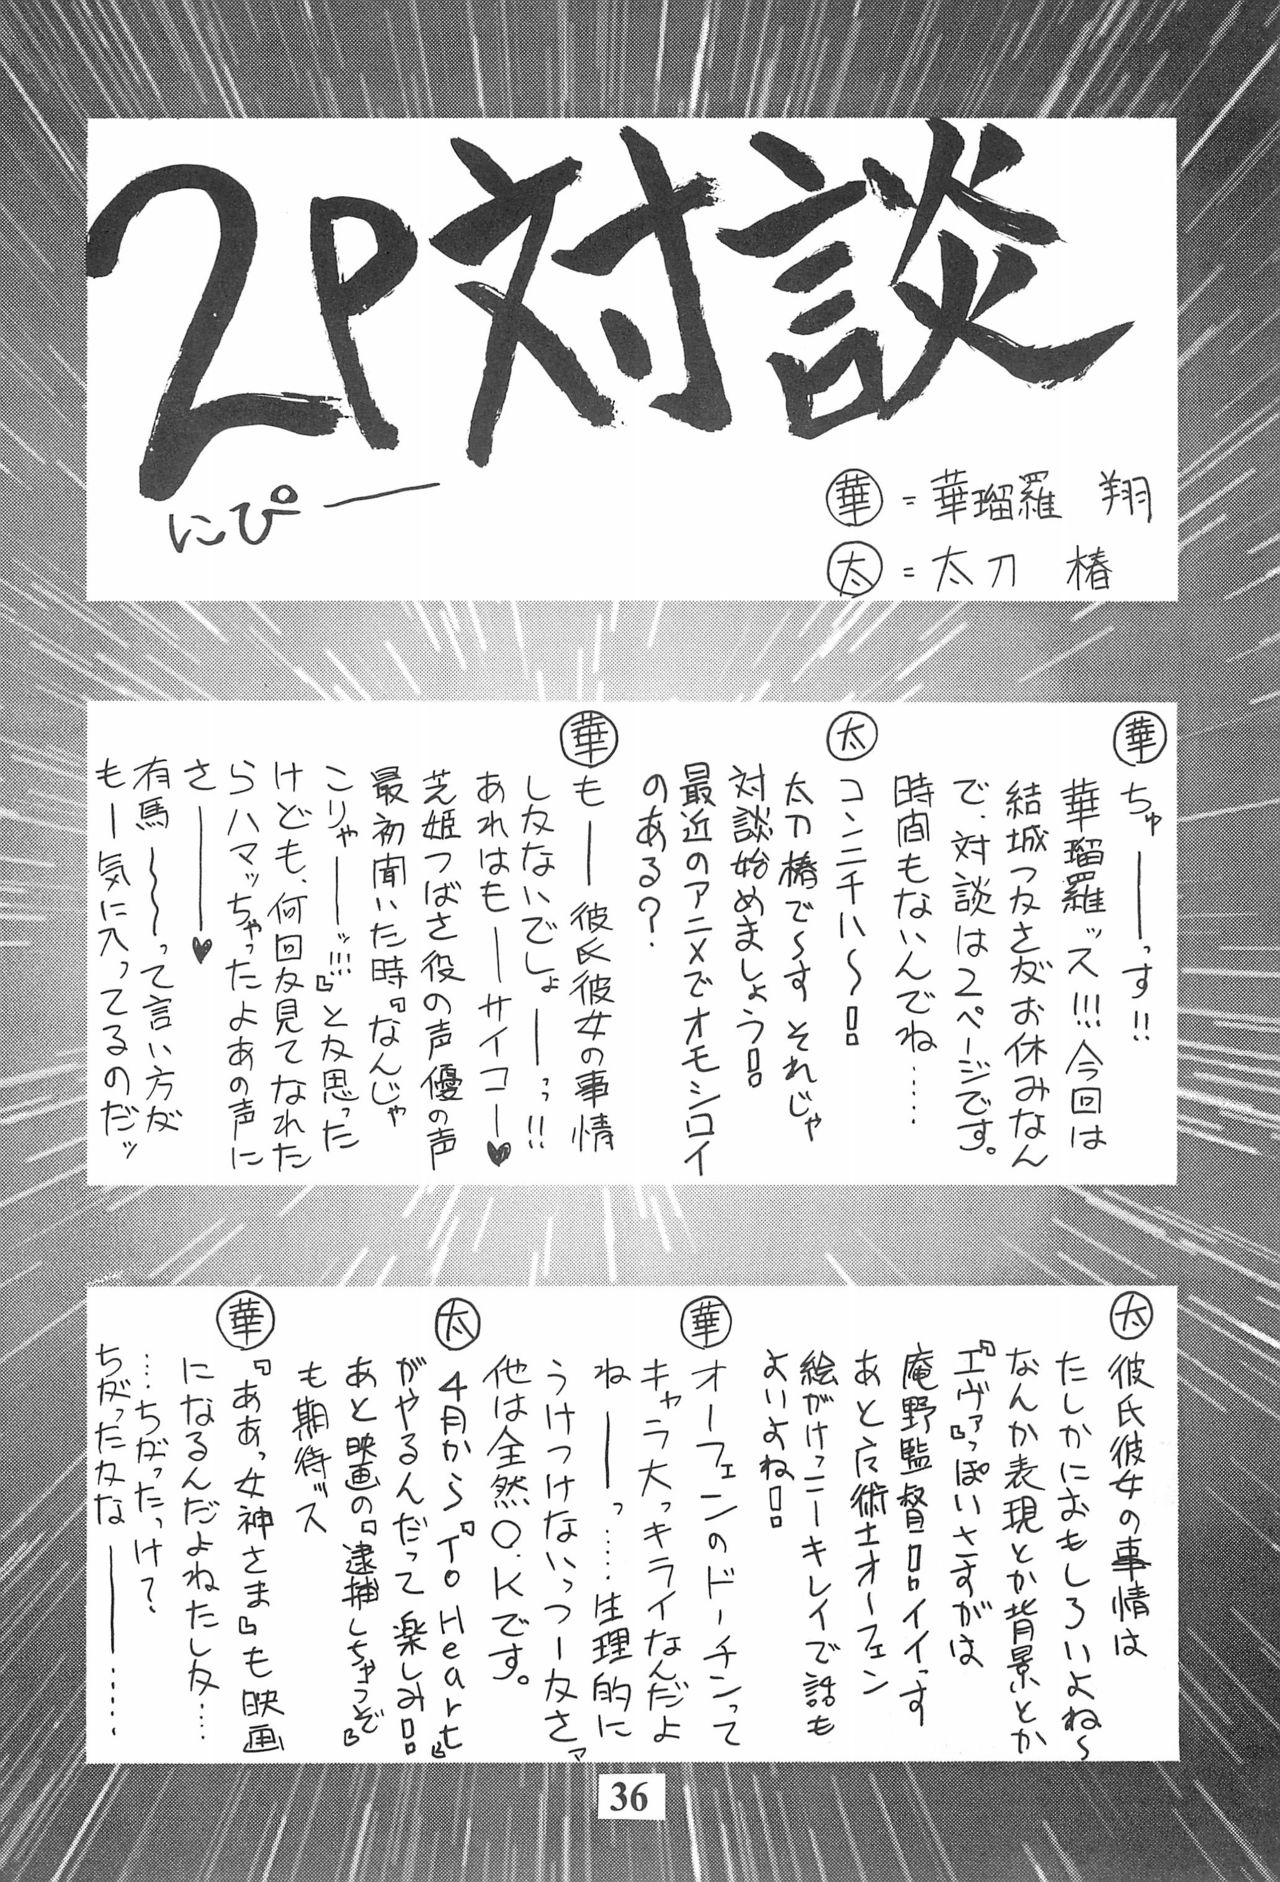 2P対談
にぴー
華=華瑠羅 翔
太=太刀 椿
華
ちゅーーっす!!
華瑠羅ッス!!!今回は
結城つばさもお休みなん
で、対談は2ページです。
時間もないんでね……
太
コンニチハ〜!
太刀椿で〜す それじゃ
対談始めましょう!
最近のアニメでオモシロイ
のある?
華
もー 彼氏彼女の事情
しかないでしょーーっ!!
あれはもーーサイコー♥
芝姫つばさ役の声優の声
最初聞いた時『なんじゃ
こりゃーーッ!!!』とも思った
けども、何回も見てなれた
らハマッちゃったよあの声に
さーーー♥
有馬〜〜って言い方が
もー気に入ってるのだッ
太
彼氏彼女の事情は
たしかにおもしろいよね〜
なんか表現とか背景とか
『エヴァ』っぽいさすがは
庵野監督!!イイっす
あと魔術士オーフェン
絵がけっこーキレイで話も
よいよね!
華
オーフェンのドーチンって
キャラ大っキライなんだよ
ねーーっ……生理的に
うけつけないっつーかさァ
他は全然O.Kです。
太
4月から『To Heart』
がやるんだって楽しみ!!
あと映画の『逮捕しちゃうぞ』
も期待ッス
華
『ああっ女神さま』も映画
になるんだよねたしか…
…ちがったっけ?
ちがったかなーーー……
36